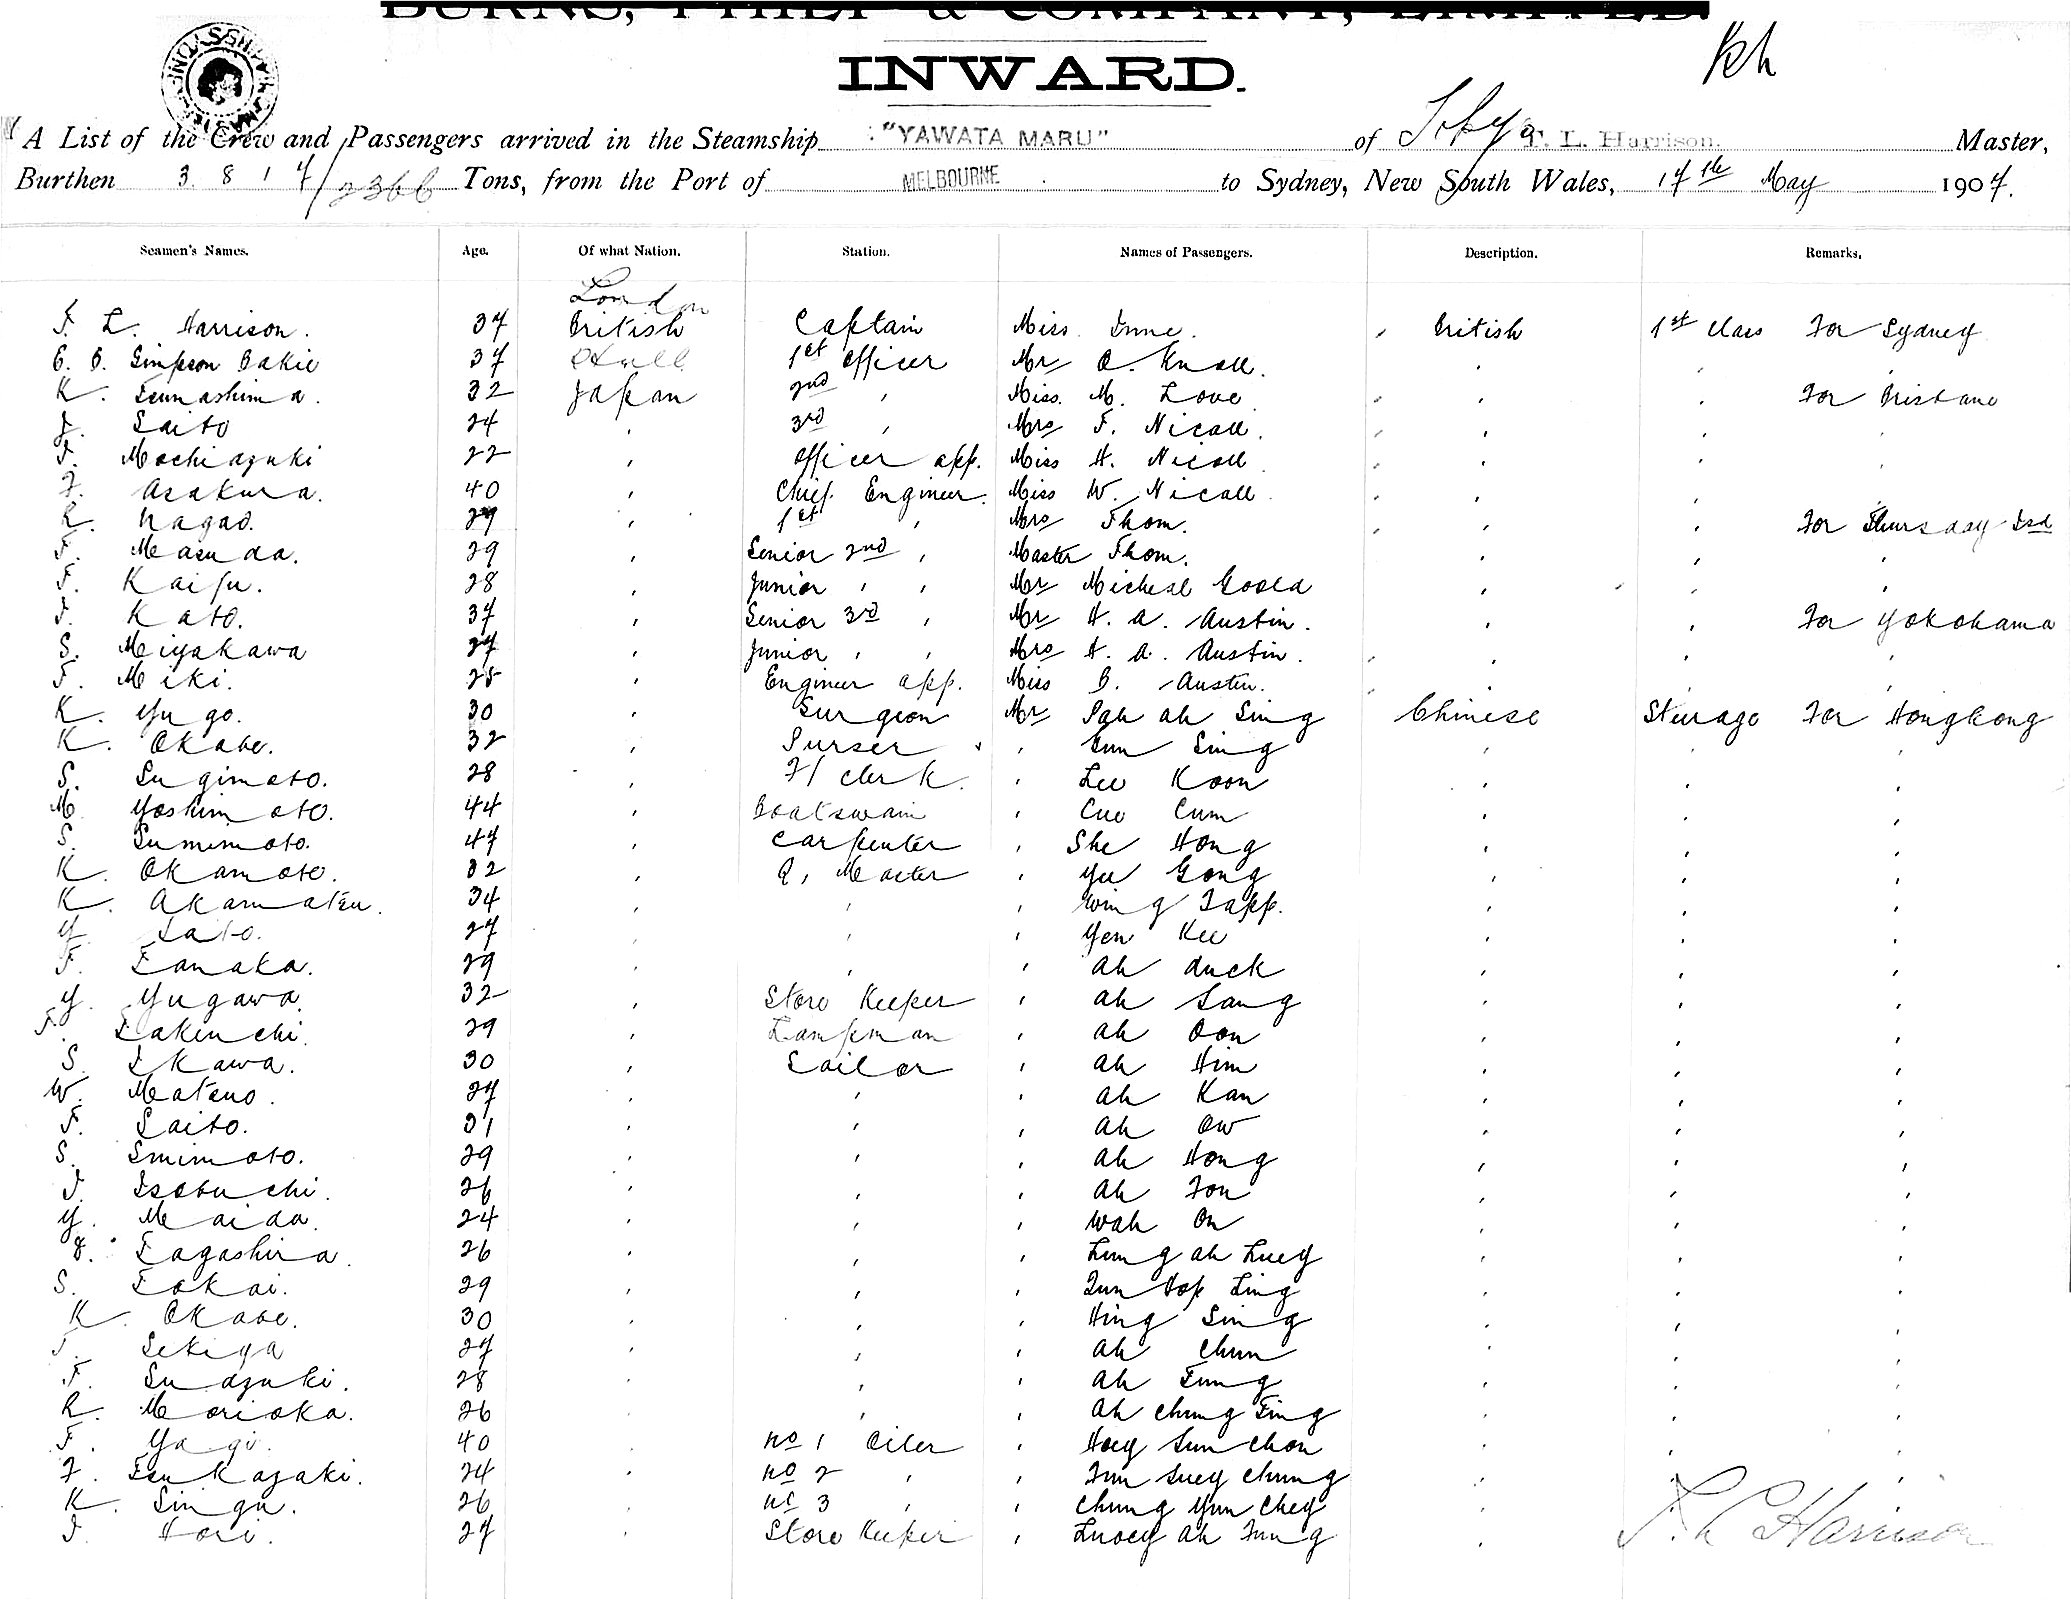 BURNS, PHILP & COMPANY, LIMITED.
INWARD.
A List of the Crew and Passengers arrived in the Steamship "YAWATA MARU" of Tokyo T. L. Harrison. Master,
Burthen 3817/2366 Tons, from the Port of MELBOURNE to Sydney, New South Wales, 17th May 1907.
Seamen's Names. Age. Of what Nation. Station. Names of Passengers. Description. Remarks.
London
T. L. Harrison. 37 British Captain Miss British 1st Class For Sydney
Simpson 37 Hull 1st Officer Mr
K. 32 Japan 2nd ' Miss. M. Love ' ' For Brisbane
Saito 24 ' 3rd ' Mrs F. Nicoll. ' '
Mochizuki 22 ' Officer app. Miss H. Nicoll ' '
Asakura. 40 ' Chief Engineer. Miss W. Nicoll ' '
Nagao. 29 ' 1st ' Mrs Thom. ' ' For Thursday Isd
T. Masuda. 29 ' Senior 2nd ' Master Thom. ' '
T. Kaifu. 28 ' Junior ' ' Mr Micheal ' '
Kato. 37 ' Senior 3rd ' Mr H. A. Austin. ' ' For Yokohama
S. Miyakawa 27 ' Junior ' ' Mrs H. A. Austin. ' '
T. Miki. 25 ' Engineer app. Miss Austin. ' '
K. Yugo. 30 ' Surgeon Mr Ah Sing Chinese Steerage For Hongkong
K. Okabe. 32 ' Purser ' Sun Sing ' ' '
S. Sugimoto. 28 ' F/ Clerk. ' Lee Koon ' ' '
M. Yoshimoto. 44 ' Boatswain ' Cum ' ' '
S. Sumimoto. 47 ' Carpenter ' She Hong ' ' '
K. Okamoto. 32 ' Q, Master ' Gong ' ' '
K. Akamatsu. 34 ' ' ' Wing Tapp. ' ' '
Y. Sato. 27 ' ' ' Yen Kee ' ' '
T. Tanaka. 29 ' ' ' Ah Duck ' ' '
Y. Yugawa. 32 ' Store Keeper ' Ah Sang ' ' '
T. Takeuchi. 29 ' Lampman ' Ah ' ' '
S. Ikawa. 30 ' Sailor ' Ah Him ' ' '
W. Matsuo. 27 ' ' ' Ah Kan ' ' '
T. Saito. 31 ' ' ' Ah Ow ' ' '
S. 29 ' ' ' Ah Hong ' ' '
Isobuchi. 26 ' ' ' Ah Fon ' ' '
Y. Maida. 24 ' ' ' Wah On ' ' '
Tagashira. 26 ' ' ' Ah ' ' '
S. Sakai. 29 ' ' ' Hop ' ' '
K. Okabe. 30 ' ' ' Hing Sing ' ' '
Sekiya 27 ' ' ' Ah Chun ' ' '
T. Suzuki. 28 ' ' ' Ah ' ' '
R. Morioka. 26 ' ' ' Ah Chung ' ' '
T. Yagi. 40 ' No 1 Oiler ' Hoey Sun Chon ' ' '
Tsukazaki. 24 ' No 2 ' ' Suey Chung ' ' '
K. Singu. 26 ' No 3 ' ' Chung Yun ' ' '
Hori. 27 ' Store Keeper ' Ah ' T. L. Harrison